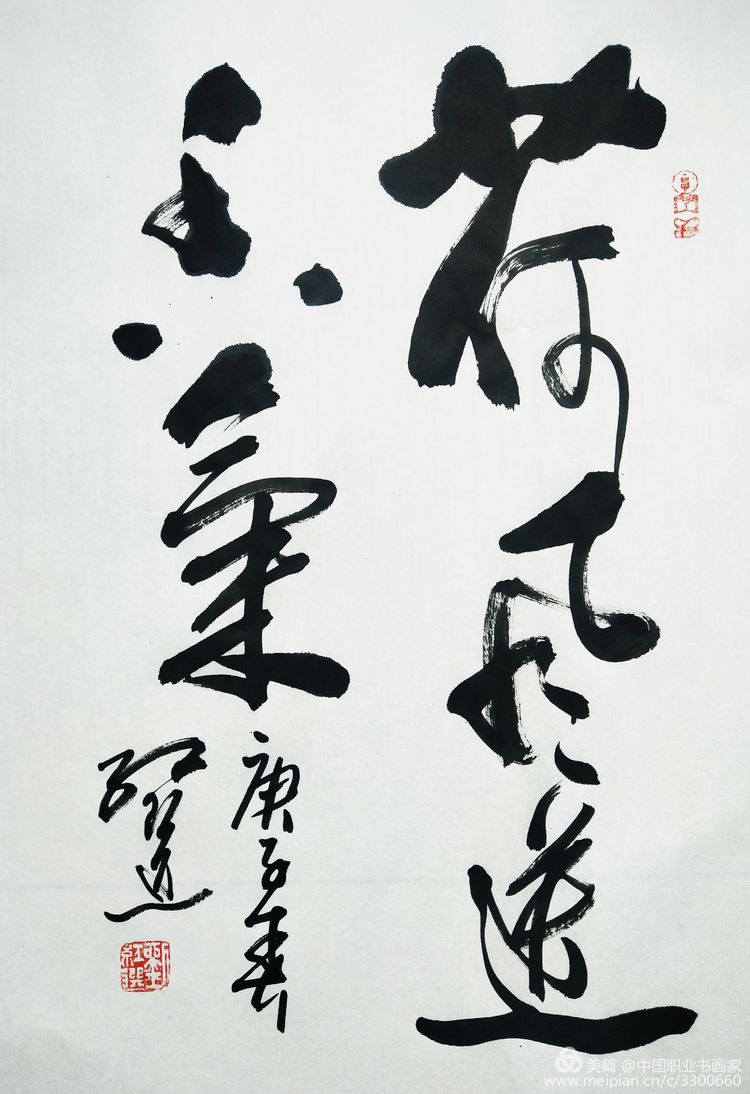 荷風送
香氣
庚子春
红选
美篇 @中国职业书画家
www.meipian.cn/c/3300660